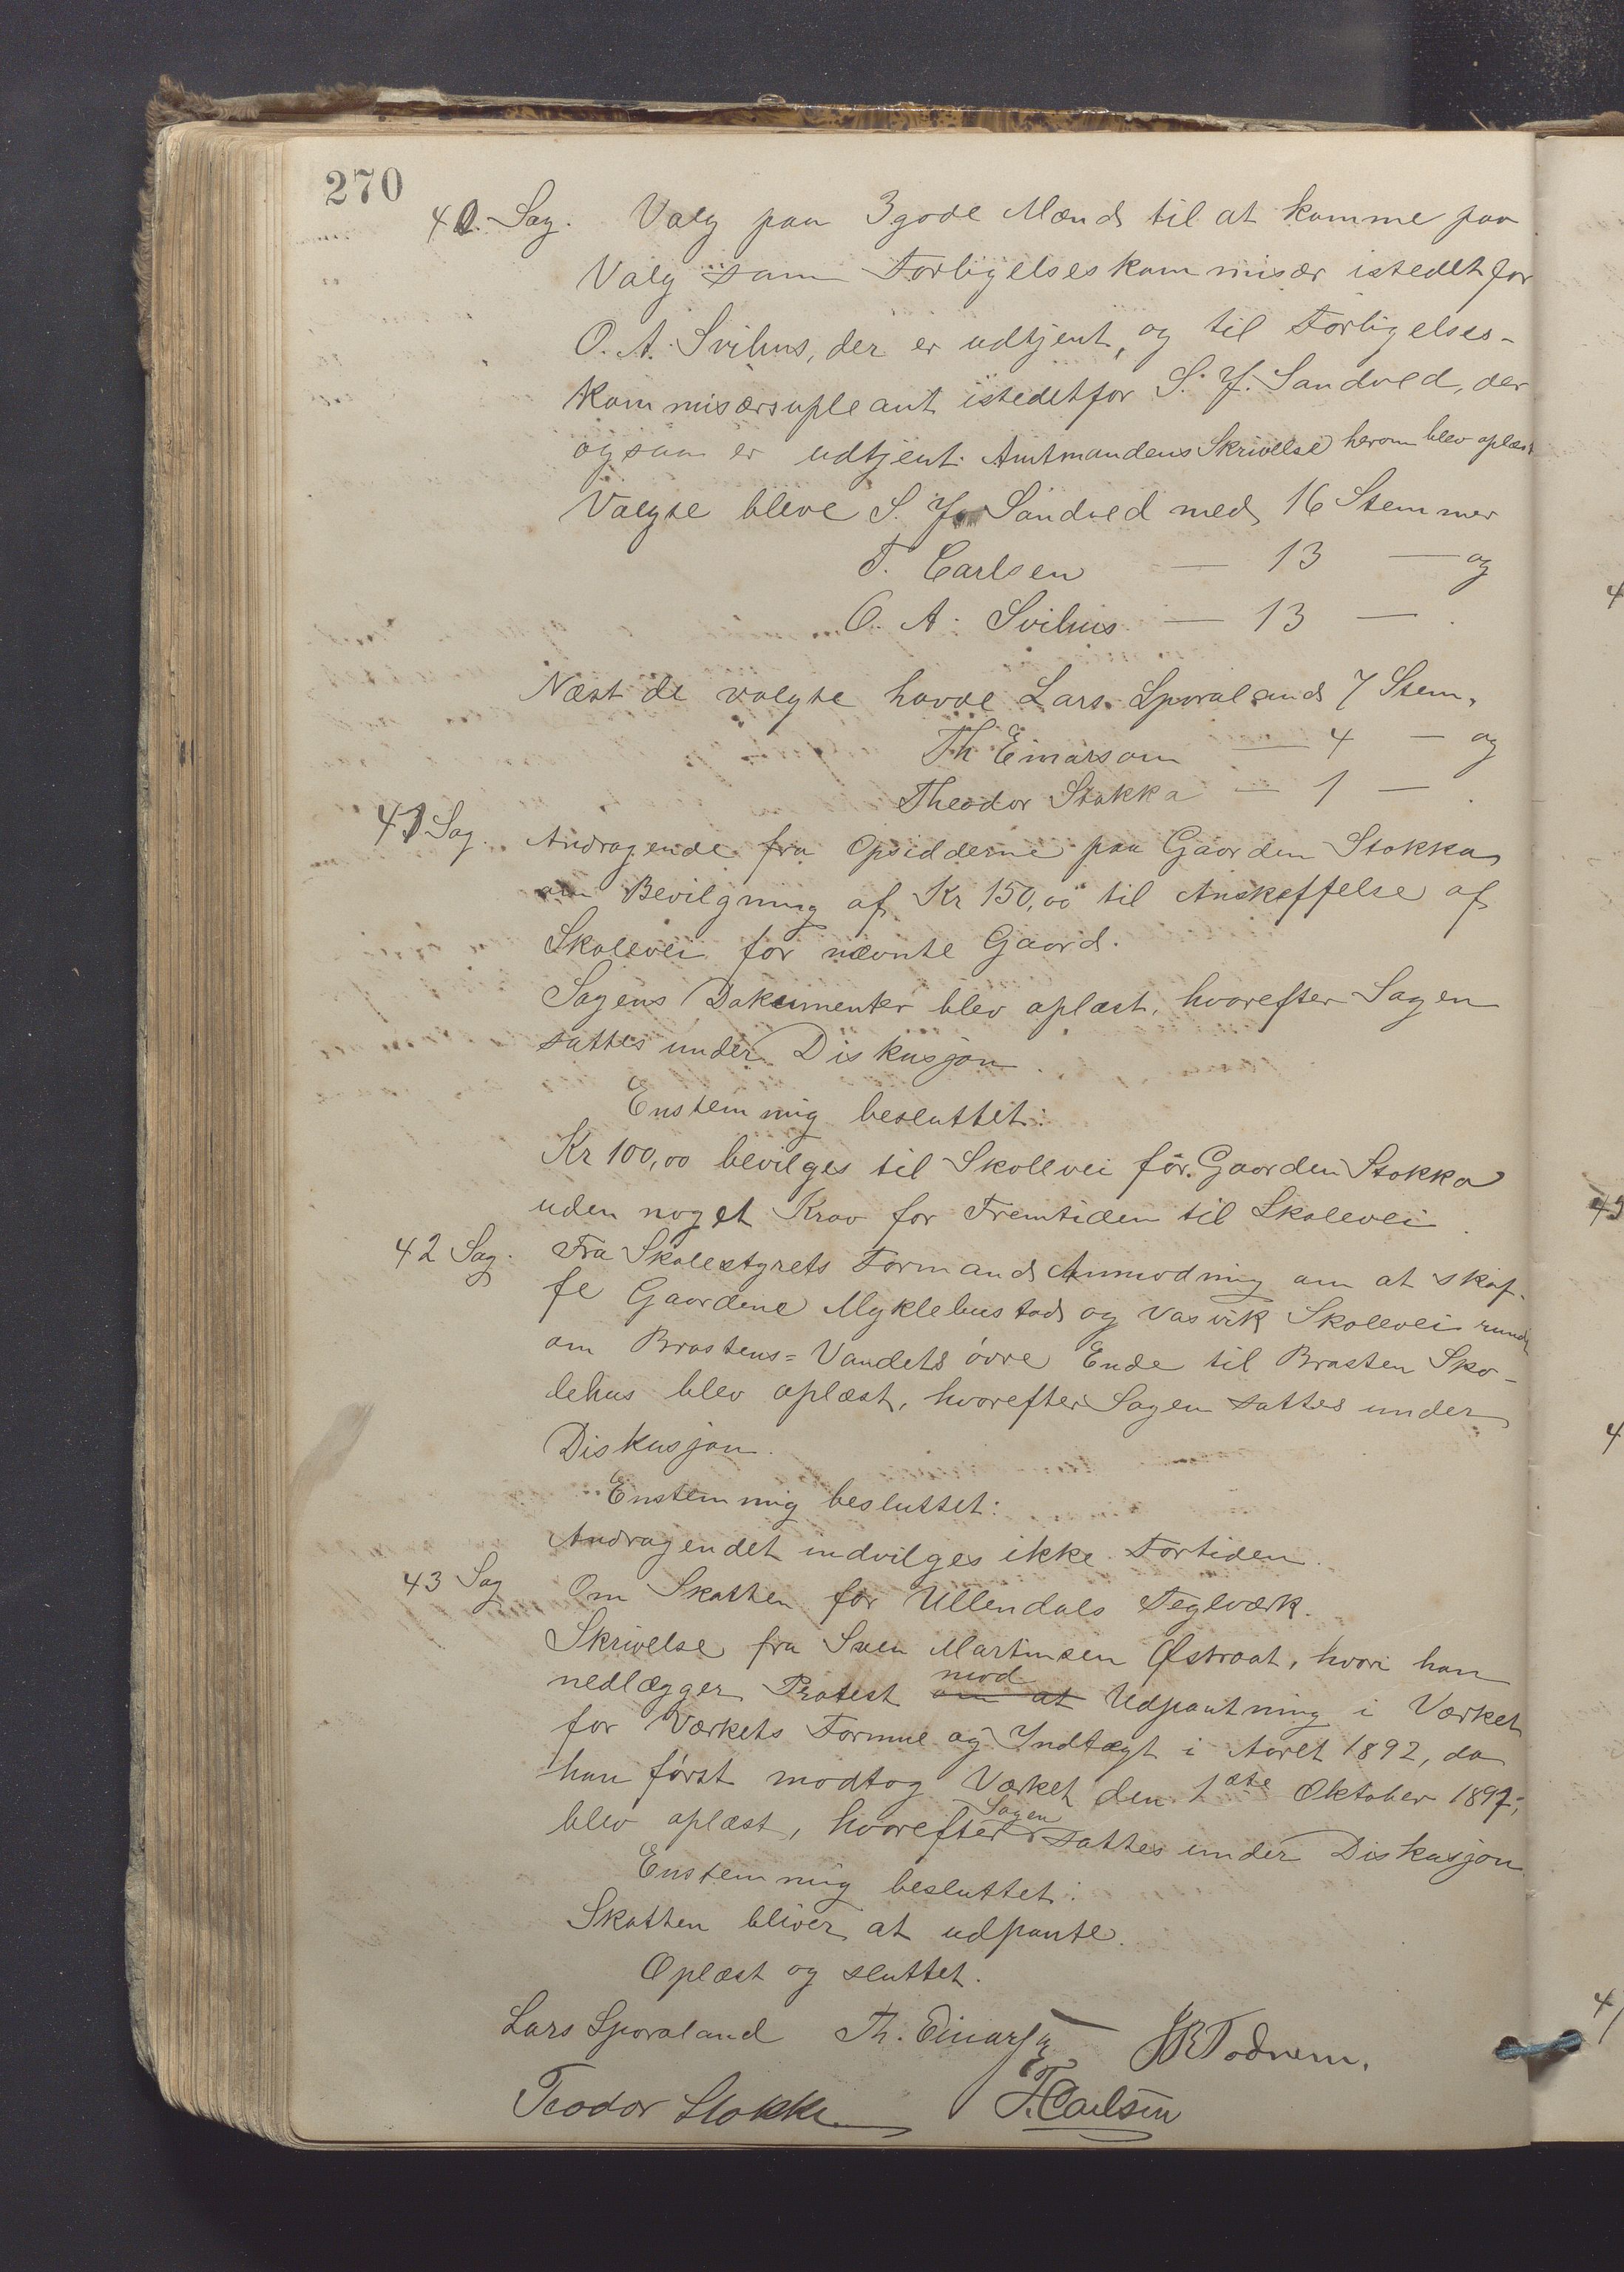 270
40. Sag. Valg paa 3 gode Mænd til at komme paa
Valg som Forligelseskommisær istedetfor
O. A. Svihus, der er udtjent, og til Forligelses-
kommisærsupleant istedetfor S. J. Sandved, der
ogsaa er udtjent. Amtmandens Skrivelse herom blev oplæst
Valgte bleve S. J. Sandved med 16 Stemmer
T. Carlsen — 13 — og
O. A. Svihus — 13 — .
Næst de valgte havde Lars Sporaland 7 Stem.
Th Einarson — 4 — og
Theodor Stokka — 1 — .
41 Sag. Andragende fra Opsidderne paa Gaarden Stokka
om Bevilgning af Kr 150,00 til Anskaffelse af
Skolevei for nævnte Gaard.
Sagens Dokumenter blev oplæst, hvorefter Sagen
sattes under Diskusjon.
Enstemmig besluttet:
Kr 100,00 bevilges til Skolevei for Gaarden Stokka
uden noget Krav for Fremtiden til Skolevei.
42 Sag. Fra Skolestyrets Formand Anmodning om at skaf-
fe Gaardene Myklebustad og Vasvik Skolevei rundt
om Brastens=Vandets övre Ende til Brasten Sko-
lehus blev oplæst, hvorefter Sagen sattes under
Diskusjon.
Enstemmig besluttet:
Andragendet indvilges ikke Fortiden.
43 Sag Om Skatten for Ullendals Teglværk.
Skrivelse fra Sven Martinsen Østraat, hvori han
nedlægger Protest om at mod Udpantning i Værket
for Værkets Formue og Indtægt i Aaret 1892, da
han först modtog Værket den 1ste Oktober 1897;
blev oplæst, hvorefter Sagen sattes under Diskusjon.
Enstemmig besluttet:
Skatten bliver at udpante.
Oplæst og sluttet.
Lars Sporaland Th. Einarson JB Todnem.
Teodor Stokka T. Carlsen